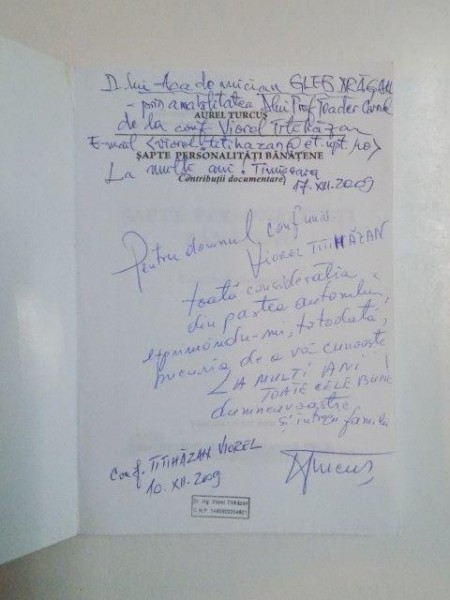 D-lui Academician GLEB DRĂGAN
- prin amabilitatea D-lui Prof. Toader Cornel
AUREL TURCUȘ
de la conf. Viorel Titihăzan
E-mail <viorel.titihazan@et.upt.ro>
ȘAPTE PERSONALITĂȚI BĂNĂȚENE
La mulți ani! Timișoara
Contribuții documentare
17.XII.2009
Pentru domnul conf. univ.
VIOREL TITIHĂZAN
toată considerația
din partea autorului,
exprimându-mi, totodată,
bucuria de a vă cunoaște
LA MULȚI ANI!
TOATE CELE BUNE
dumneavoastre
și întregii familii
Conf. TITIHĂZAN VIOREL
10.XII.2009
ATurcuș
Dr. ing. Viorel Titihăzan
C.N.P.